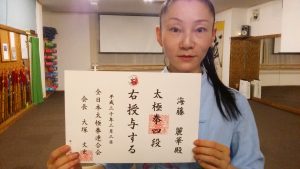 海藤 麗華殿
太極拳四段
右授与する
平成二十年二月二日
全日本太極拳連合会
会長 大塚